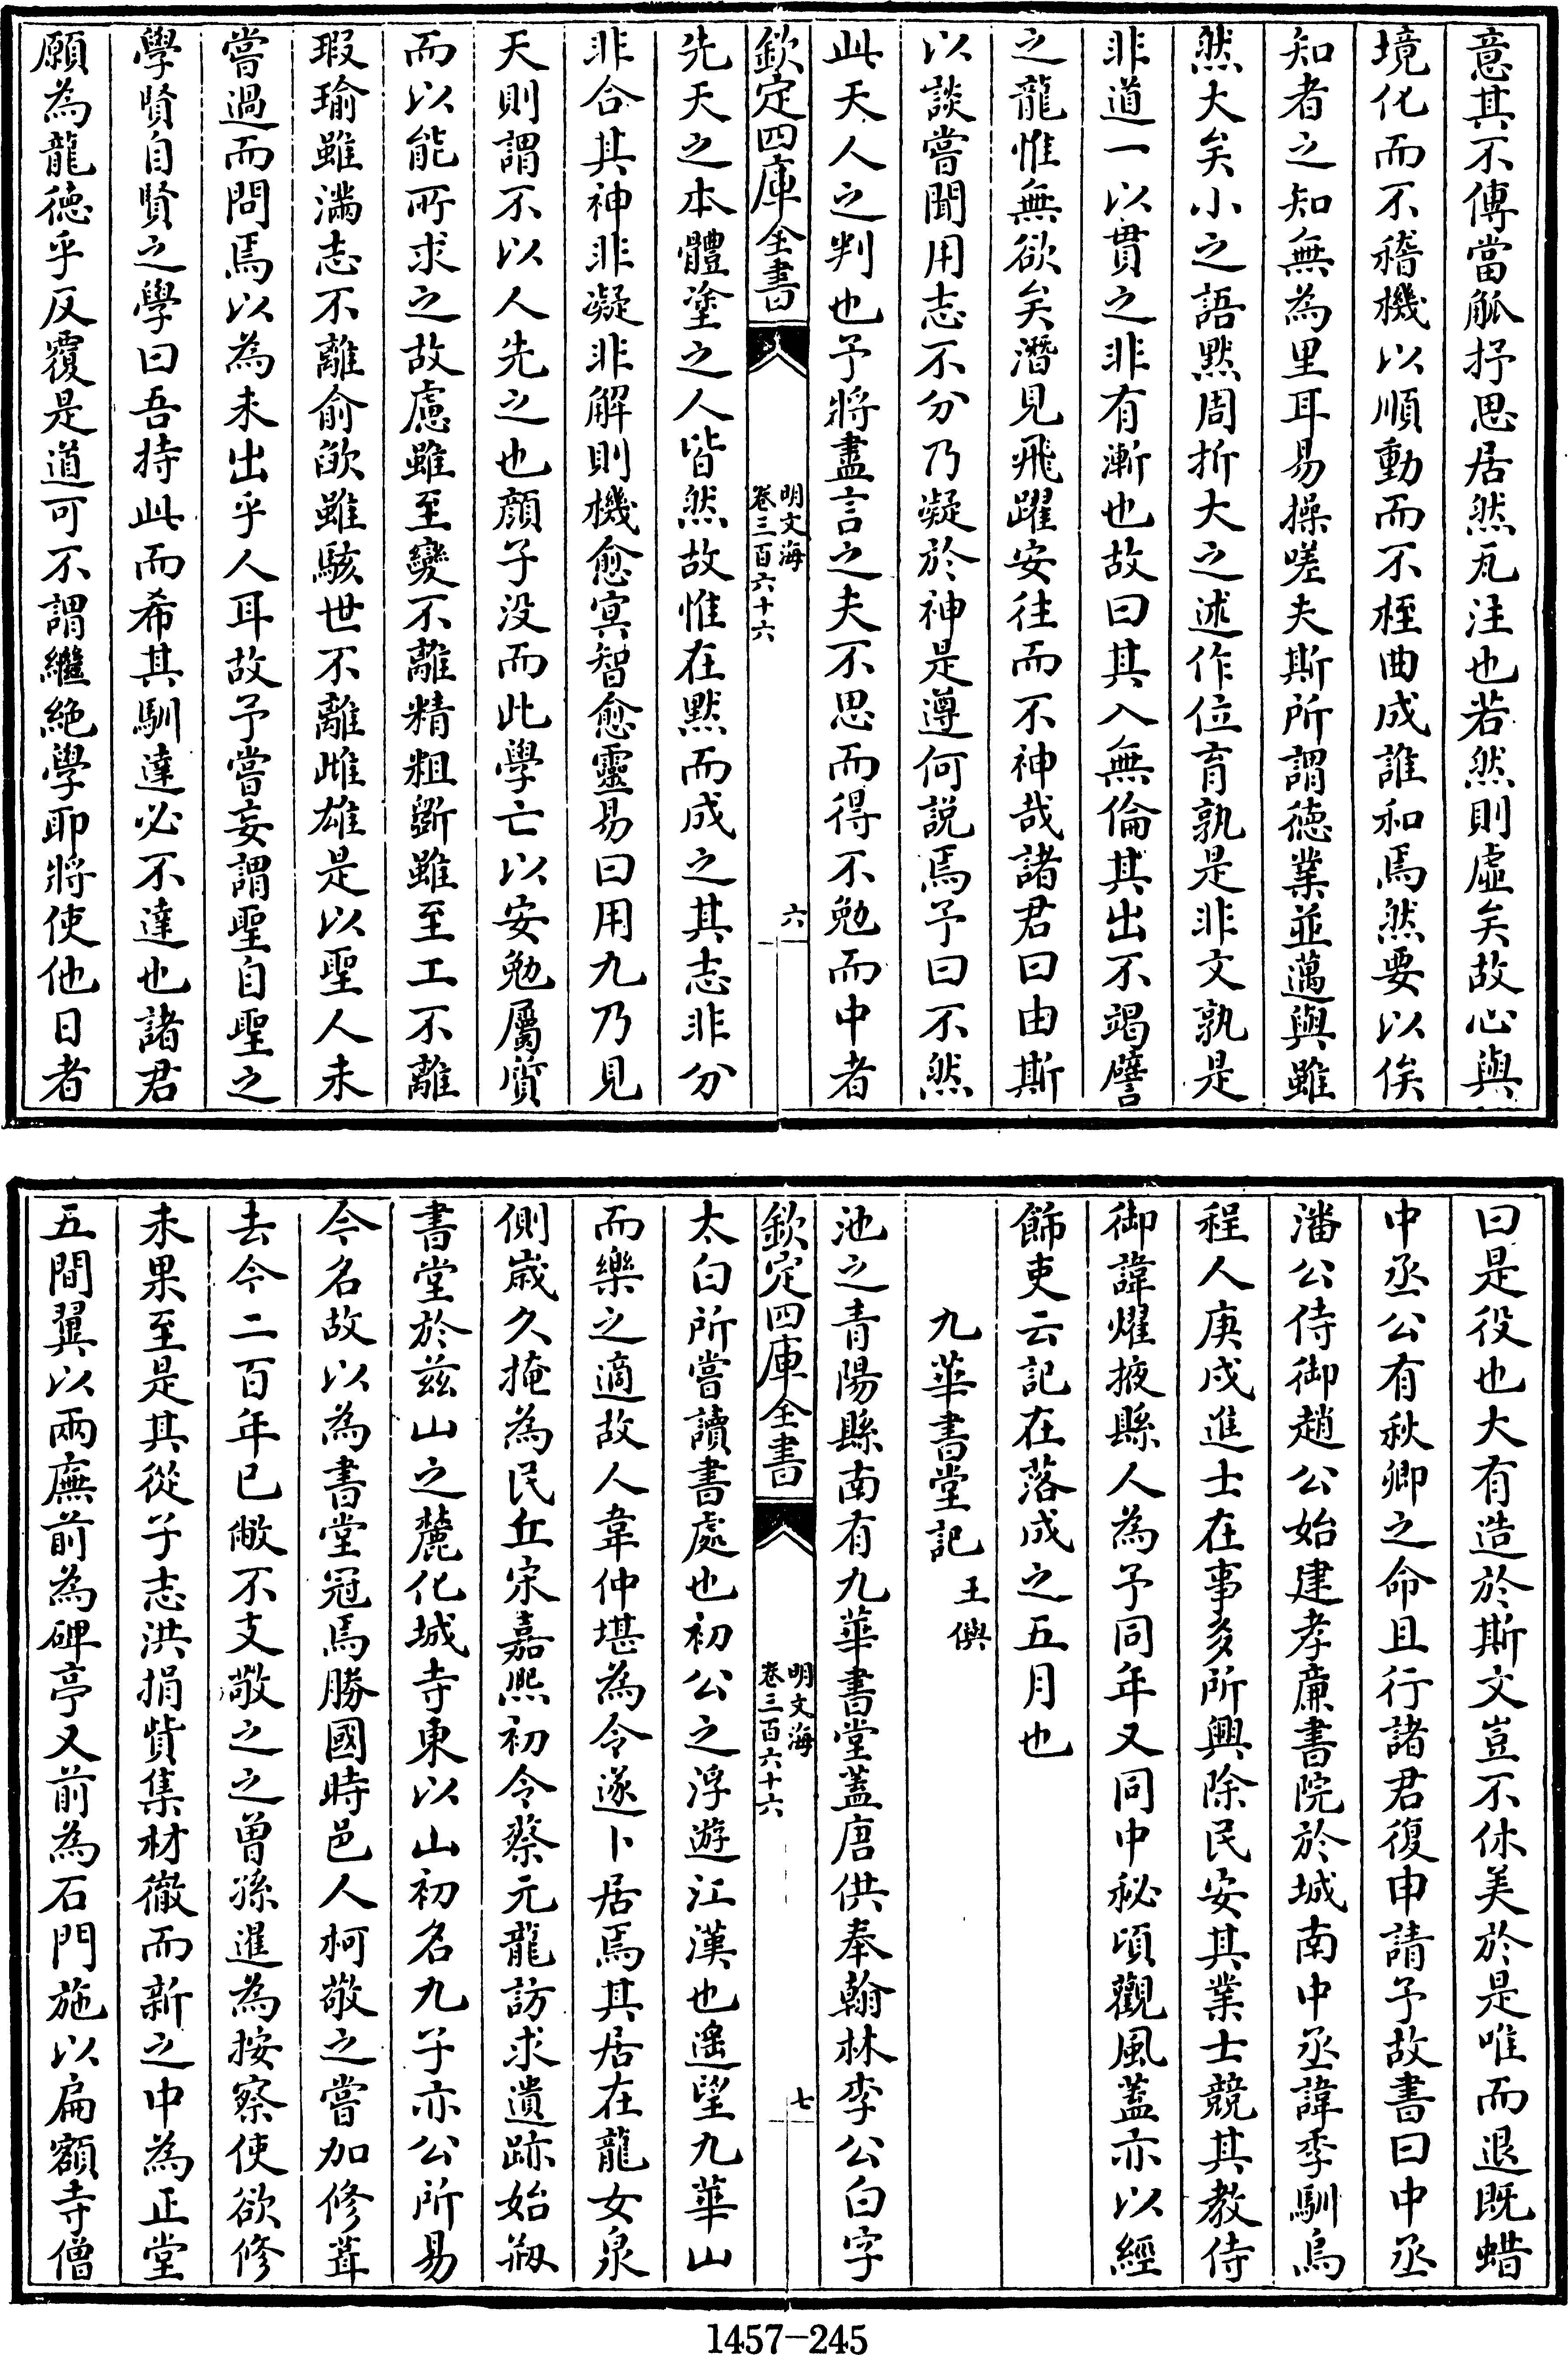 意其不傳當觚抒思居然瓦注也若然則虛矣故心與
境化而不稽機以順動而不桎曲成誰和焉然要以俟
知者之知無為里耳易操嗟夫斯所謂德業並邁與雖
然大矣小之語黙周折大之述作位育孰是非文孰是
非道一以貫之非有漸也故曰其入無倫其出不竭譬
之龍惟無欲矣潛見飛躍安往而不神哉諸君曰由斯
以談嘗聞用志不分乃凝於神是遵何説焉予曰不然
此天人之判也予將盡言之夫不思而得不勉而中者
欽定四庫全書
明文海
卷三百六十六
六
先天之本體塗之人皆然故惟在黙而成之其志非分
非合其神非凝非解則機愈㝠智愈靈易曰用九乃見
天則謂不以人先之也顔子没而此學亡以安勉屬質
而以能所求之故慮雖至變不離精粗斵雖至工不離
瑕瑜雖滿志不離俞㰸雖駭世不離雌雄是以聖人未
嘗過而問焉以為未出乎人耳故予嘗妄謂聖自聖之
學賢自賢之學曰吾持此而希其馴達必不達也諸君
願為龍德乎反覆是道可不謂繼絶學耶將使他日者
曰是役也大有造於斯文豈不休美於是唯而退既蜡
中丞公有秋卿之命且行諸君復申請予故書曰中丞
潘公侍御趙公始建孝廉書院於城南中丞諱季馴烏
程人庚戌進士在事多所興除民安其業士競其教侍
御諱燿掖縣人為予同年又同中秘頃觀風蓋亦以經
飾吏云記在落成之五月也
九華書堂記 王㒜
池之青陽縣南有九華書堂蓋唐供奉翰林李公白字
欽定四庫全書
明文海
卷三百六十六
七
太白所嘗讀書處也初公之浮遊江漢也遙望九華山
而樂之適故人韋仲堪為令遂卜居焉其居在龍女泉
側歲久掩為民丘宋嘉熙初令蔡元龍訪求遺跡始剏
書堂於兹山之麓化城寺東以山初名九子亦公所易
今名故以為書堂冠焉勝國時邑人柯敬之嘗加修葺
去今二百年已敝不支敬之之曽孫暹為按察使欲修
未果至是其從子志洪捐貲集材徹而新之中為正堂
五間翼以兩廡前為碑亭又前為石門施以扁額寺僧
1457-245